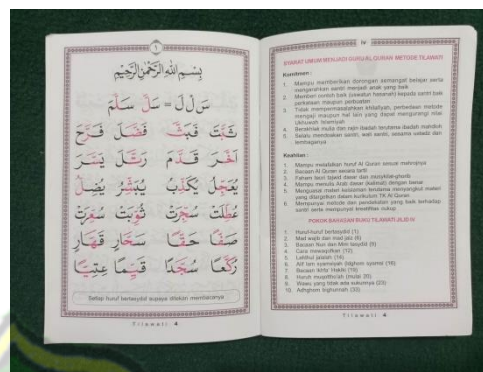 ١
بِسْمِ اللهِ الرَّحْمٰنِ الرَّحِيْمِ
سَ لْ لَ = سَلَّ سَلَّمَ
فَرَّحَ
أَخَّرَ قَدَّمَ رَتَّلَ يَسَّرَ
يُعَجِّلُ يُكَذِّبُ يُبَشِّرُ
عُطِّلَتْ سُجِّرَتْ ثُوِّبَتْ سُعِّرَتْ
صَفًّا حَقًّا سَخَّارٍ قَهَّارٍ
رُكَّعًا سُجَّدًا قَيِّمًا عِتِيًّا
Setiap huruf bertasydid supaya ditekan membacanya
Tilawati 4
IV
SYARAT UMUM MENJADI GURU AL QURAN METODE TILAWATI
Komitmen :
1. Mampu memberikan dorongan semangat belajar serta
mengarahkan santri menjadi anak yang baik
2. Memberi contoh baik (uswatun hasanah) kepada santri baik
perkataan maupun perbuatan
3. Tidak mempermasalahkan khilafiyah, perbedaan metode
mengaji maupun hal lain yang dapat mengurangi nilai
Ukhuwah Islamiyah
4. Berakhlak mulia dan rajin ibadah terutama ibadah mahdoh
5. Selalu mendoakan santri, wali santri, sesama ustadz dan
lembaganya
Keahlian :
1. Mampu melafalkan huruf Al Quran sesuai mahrojnya
2. Bacaan Al Quran secara tartil
3. Faham teori tajwid dasar dan
4. Mampu menulis Arab dasar (kalimat) dengan benar
5. Menguasai materi kelulusan terutama menyangkut materi
yang ditargetkan dalam kurikulum TK Al Quran
6. Mempunyai metode dan pendekatan yang baik terhadap
santri serta mempunyai kreatifitas cukup
POKOK BAHASAN BUKU TILAWATI JILID IV
1. Huruf-huruf bertasydid (1)
2. Mad wajib dan mad jaiz (6)
3. Bacaan Nun dan Mim tasydid (9)
4. Cara mewaqofkan (12)
5. Lafdhul jalalah (14)
6. Alif lam syamsiyah (Idghom syamsi) (16)
7. Bacaan Ikhfa' Hakiki (19)
8. Huruf muqottho'ah (mulai 20)
9. Wawu yang tidak ada sukunnya (23)
10. Adhghom bighunnah (33)
Tilawati 4